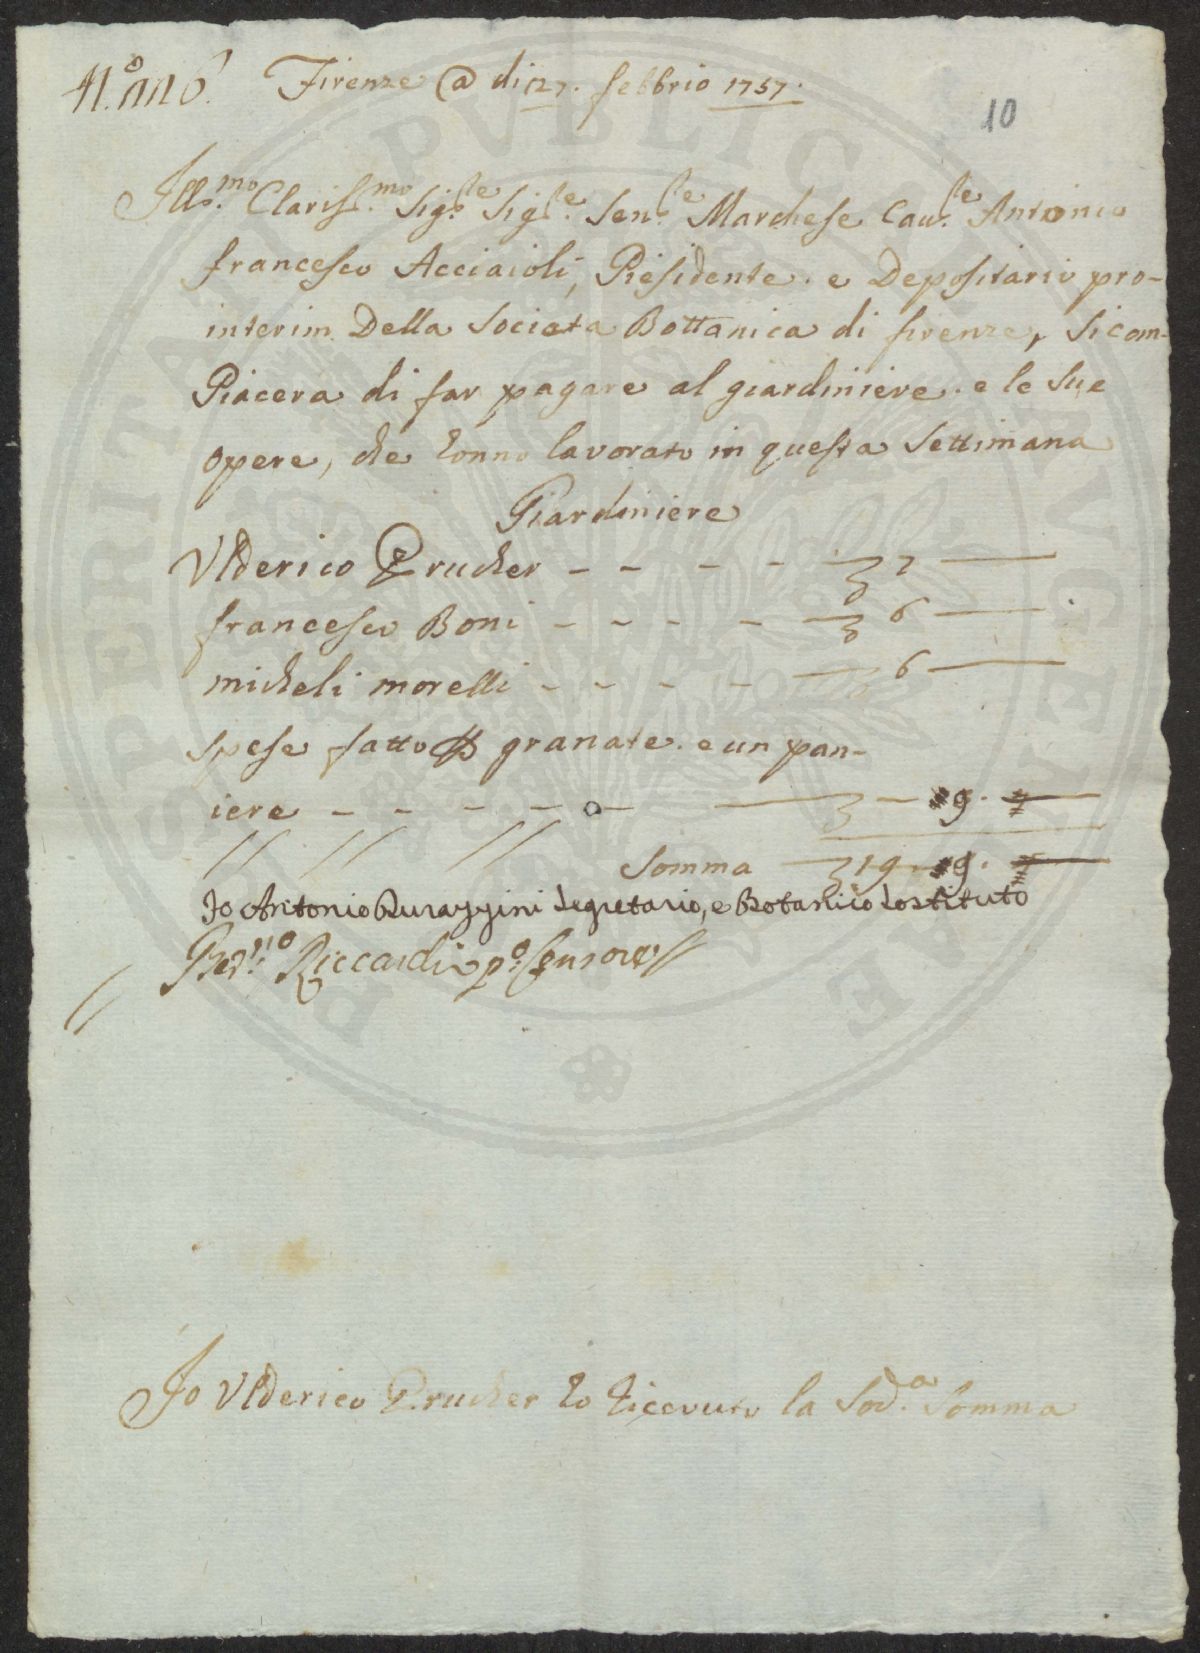 N.° 116. Firenze @ di 27. febbrio 1757.
10
Jll.mo Clariss.mo Sig.re Sig.re Sen.re Marchese Cau.re Antonio
francesco Acciaioli, Presidente. e Depositario pro-
interim Della Sociata Bottanica di firenze, Si com-
Piacera di far pagare al giardiniere. e le Sue
opere, che honno lavorato in questa Settimana
Giardiniere
Vlderico Prucher - - - - 7
francesco Boni - - - - 6
micheli morelli - - - - 6
spese fatto granate. e un pan-
iere - - - - - 9.
Somma 19. 9.
Jo Antonio Durazzini Segretario, e Botanico Sostituto
Riccardi p.° Censore
Jo Vlderico Prucher ho riceuuto la Sod.a Somma
PVBLICAE AVGENDAE
PROSPERITATI